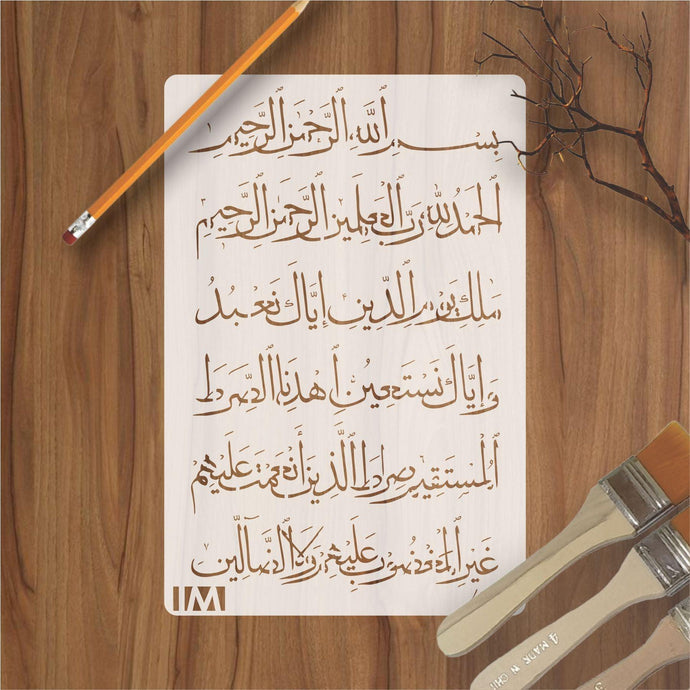 بِسْمِ ٱللَّهِ ٱلرَّحْمَٰنِ ٱلرَّحِيمِ ١
ٱلْحَمْدُ لِلَّهِ رَبِّ ٱلْعَٰلَمِينَ ٱلرَّحْمَٰنِ ٱلرَّحِيمِ ٣
مَٰلِكِ يَوْمِ ٱلدِّينِ ٤ إِيَّاكَ نَعْبُدُ
وَإِيَّاكَ نَسْتَعِينُ ٱهْدِنَا ٱلصِّرَٰطَ
ٱلْمُسْتَقِيمَ صِرَٰطَ ٱلَّذِينَ أَنْعَمْتَ عَلَيْهِمْ
غَيْرِ ٱلْمَغْضُوبِ عَلَيْهِمْ وَلَا ٱلضَّآلِّينَ ٧
IM
4 MADE IN CHI